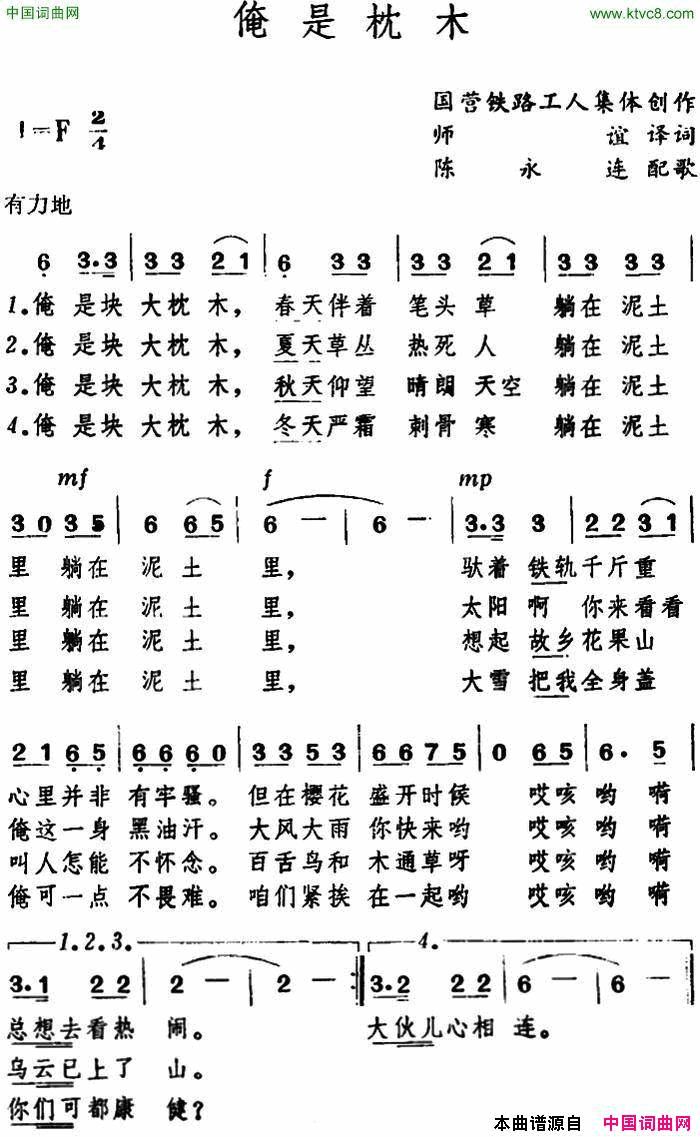 中国词曲网
www.ktvc8.com
俺是枕木
国营铁路工人集体创作
1=F 2/4
师谊译词
陈永连配歌
有力地
6 3·3 33 21 6 33 33 21 33 33
1.俺是块大枕木，春天伴着笔头草 躺在泥土
2.俺是块大枕木，夏天草丛热死人 躺在泥土
3.俺是块大枕木，秋天仰望晴朗天空 躺在泥土
4.俺是块大枕木，冬天严霜刺骨寒 躺在泥土
mf f mp
30 35 6 65 6 — 6 — 3·3 3 22 31
里 躺在泥土里， 驮着铁轨千斤重
里 躺在泥土里， 太阳啊 你来看看
里 躺在泥土里， 想起故乡花果山
里 躺在泥土里， 大雪把我全身盖
21 65 66 60 33 53 66 75 0 65 6· 5
心里并非有牢骚。但在樱花盛开时候 哎咳哟嗬
俺这一身黑油汗。大风大雨你快来哟 哎咳哟嗬
叫人怎能不怀念。百舌鸟和木通草呀 哎咳哟嗬
俺可一点不畏难。咱们紧挨在一起哟 哎咳哟嗬
1.2.3. 4.
3·1 22 2 — 2 — 3·2 22 6 — 6 —
总想去看热闹。 大伙儿心相连。
乌云已上了山。
你们可都康健？
本曲谱源自 中国词曲网